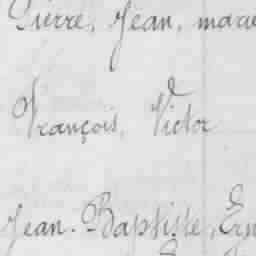 Pierre, Jean, marie
François, Victor
Jean-Baptiste, Ern